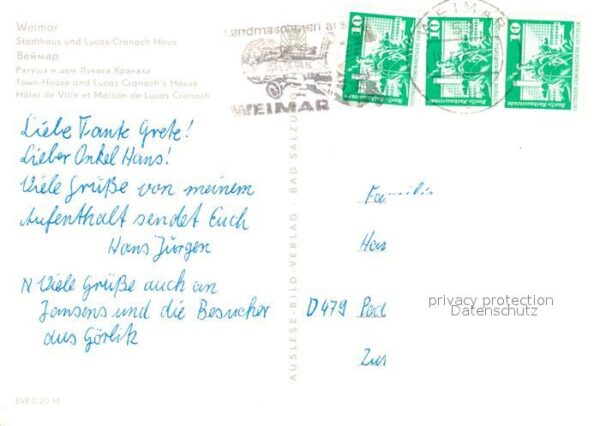 Weimar
Stadthaus und Lucas-Cranach-Haus
Веймар
Ратуша и дом Лукаса Кранаха
Town-House and Lucas Cranach's House
Hôtel de Ville et Maison de Lucas Cranach
Landmaschinen aus
WEIMAR
WEIMAR
10
10
10
Liebe Tante Grete!
Lieber Onkel Hans!
Viele Grüße von meinem
Aufenthalt sendet Euch
Hans Jürgen
N Viele Grüße auch an
Jansens und die Besucher
aus Görlitz
AUSLESE-BILD-VERLAG · BAD SALZU
Familie
Han
D479 Pad
Zur
privacy protection
Datenschutz
EVP 0,20 M